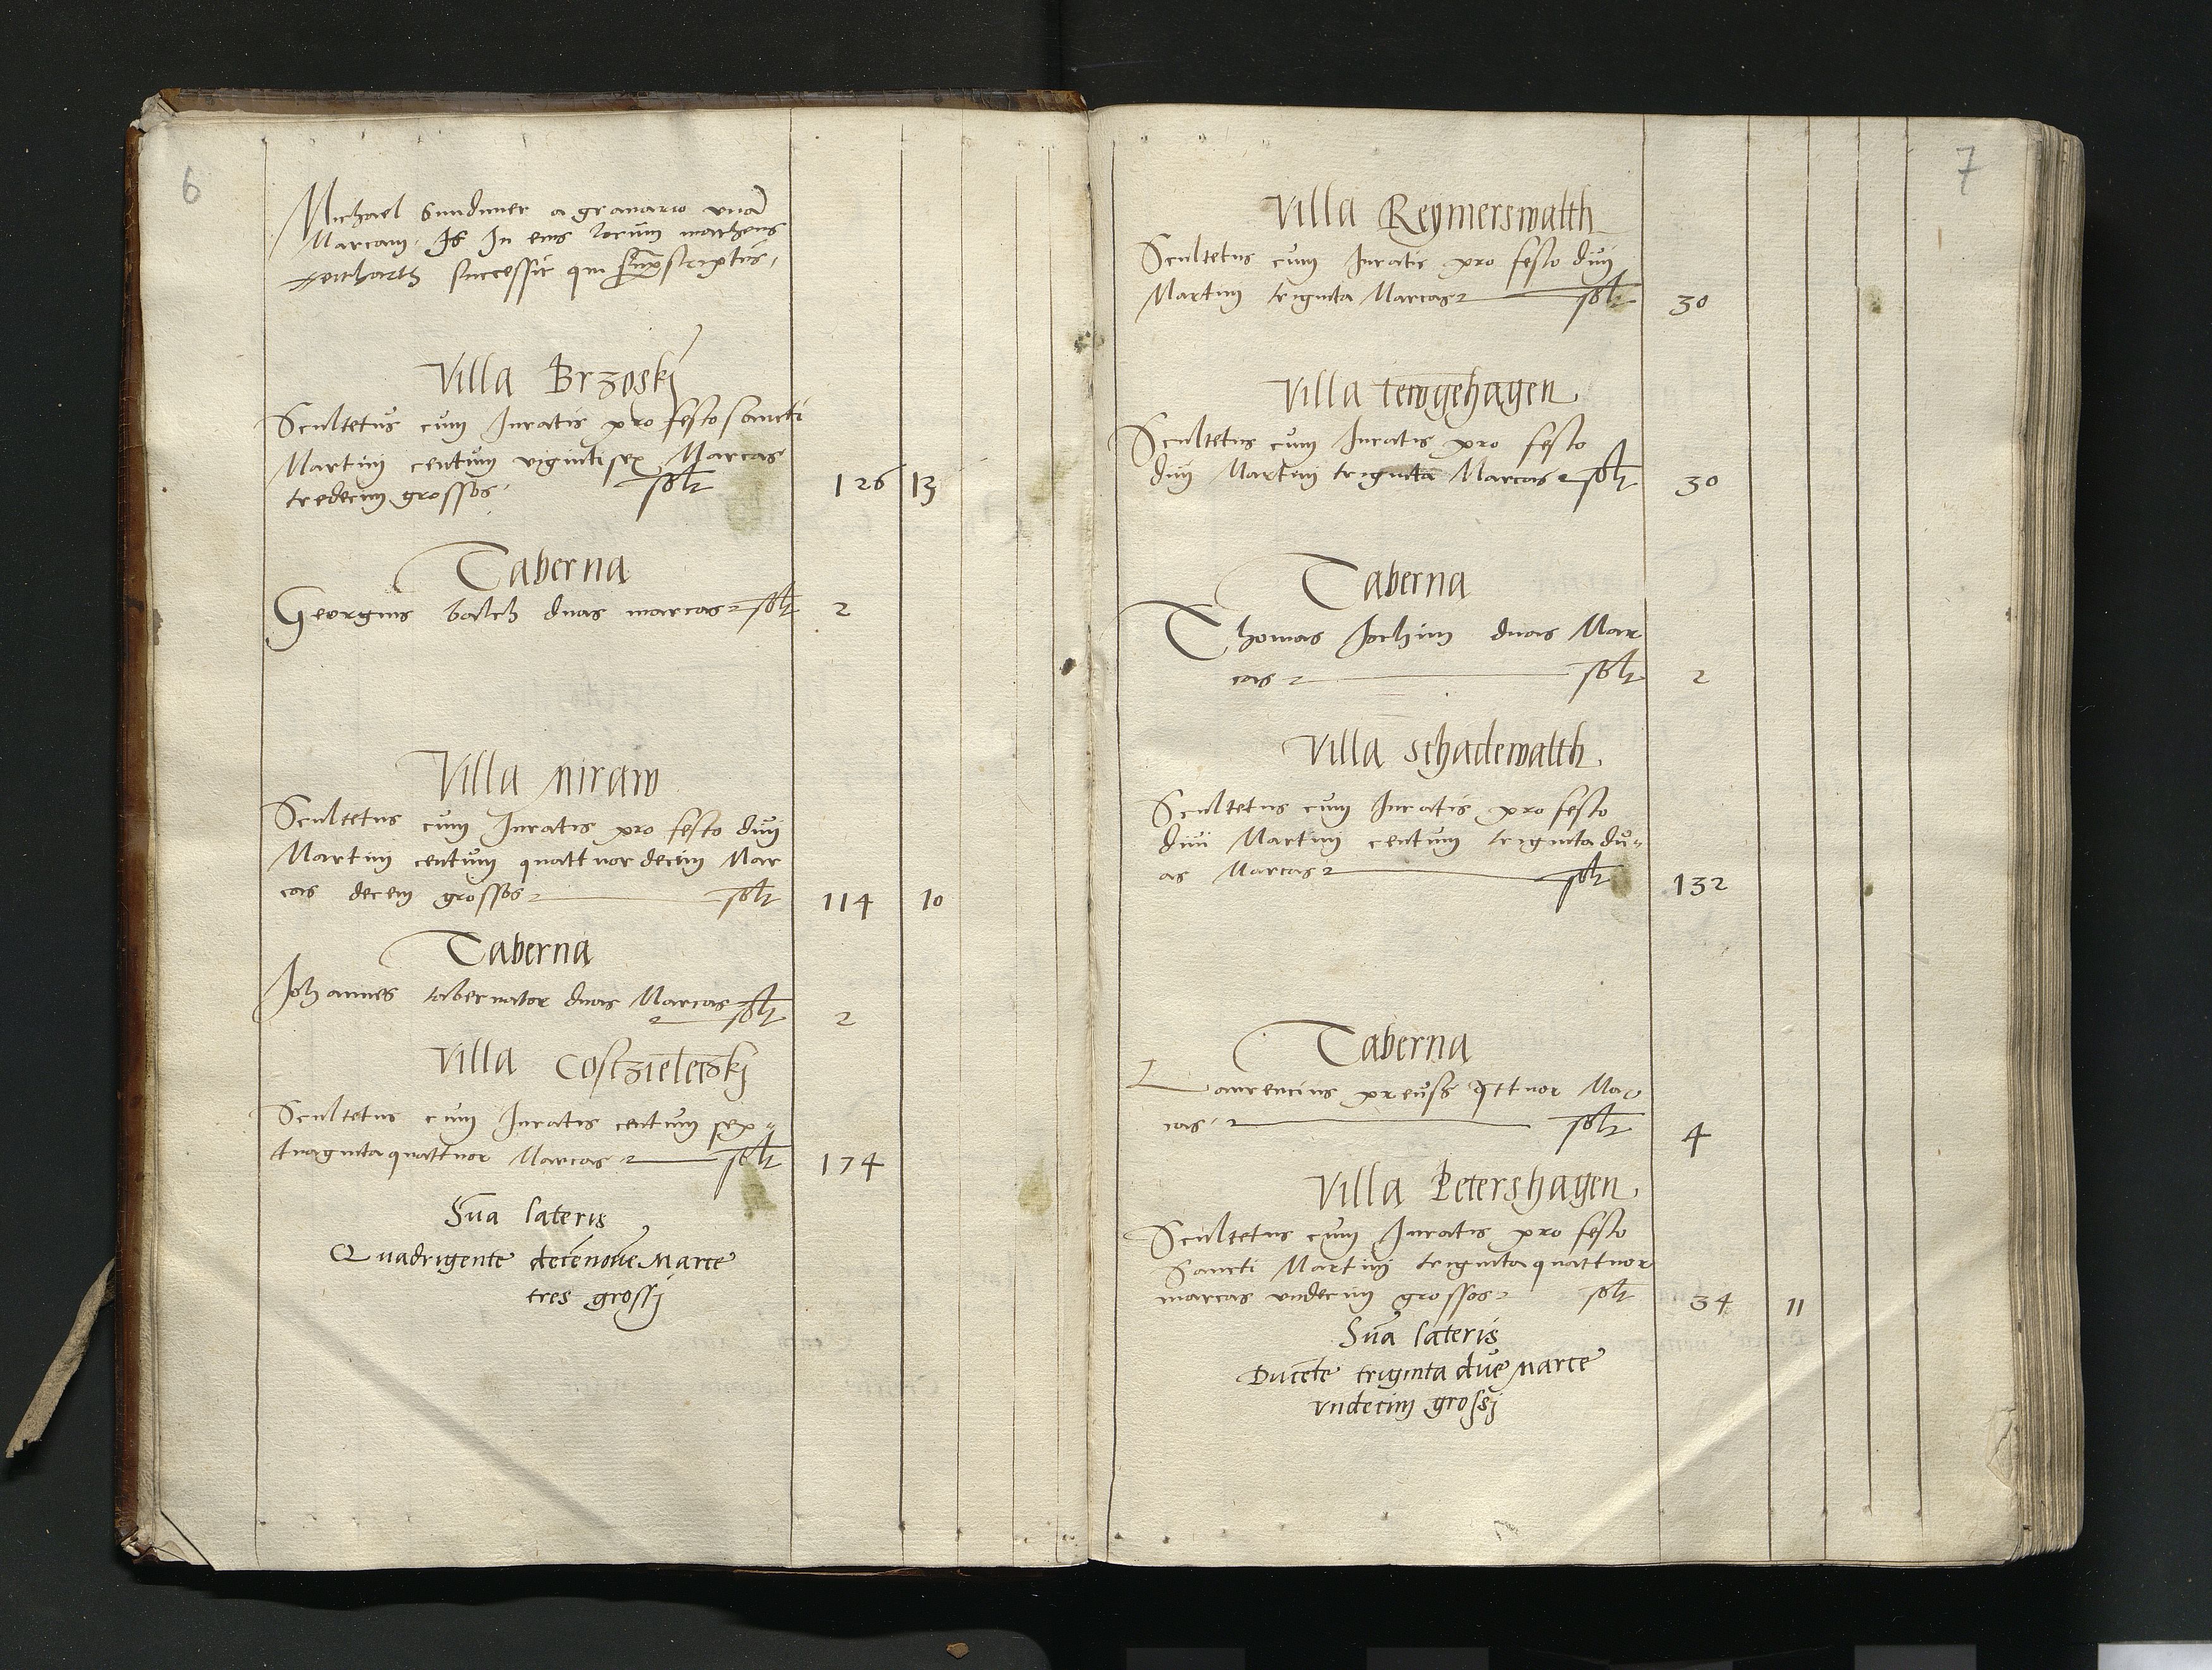 6
Michael Gundmer a granario vnā
Marcam. Is In eius locum matheus
successit qui supscriptus.
Villa Brzoskj
Scultetus cum Juratis pro festo sancti
Martinj centum vigintisex Marcas
tredecim grossos. solt 126 13
Taberna
Georgius balch duas marcas solt 2
Villa niraw
Scultetus cum Juratis pro festo diuj
Martinj centum quattuordecim Mar
cas decem grossos solt 114 10
Taberna
Johannes tabernator duas Marcas
solt 2
Villa Costzieletzkj
Scultetus cum Juratis centum sep=
tuagintaquattuor Marcas solt 174
Sūa lateris
Quadrigente decēnouē Marce
tres grossj
7
Villa Reymerswalth
Scultetus cum Juratis pro festo diuj
Martinj triginta Marcas solt 30
Villa tewgehagen
Scultetus cum Juratis pro festo
diuj Martinj triginta Marcas solt 30
Taberna
Thomas Jochim duas Mar
cas solt 2
Villa schadewalth
Scultetus cum Juratis pro festo
diui Martinj centum trigintadu=
as Marcas solt 132
Taberna
Laurencius preuss qttuor Mar
cas. solt 4
Villa Petershagen
Scultetus cum Juratis pro festo
Sancti Martinj trigintaquattuor
marcas vndecim grossos solt 34 11
Sūa lateris
Ducēte triginta due Marce
vndecim grossj